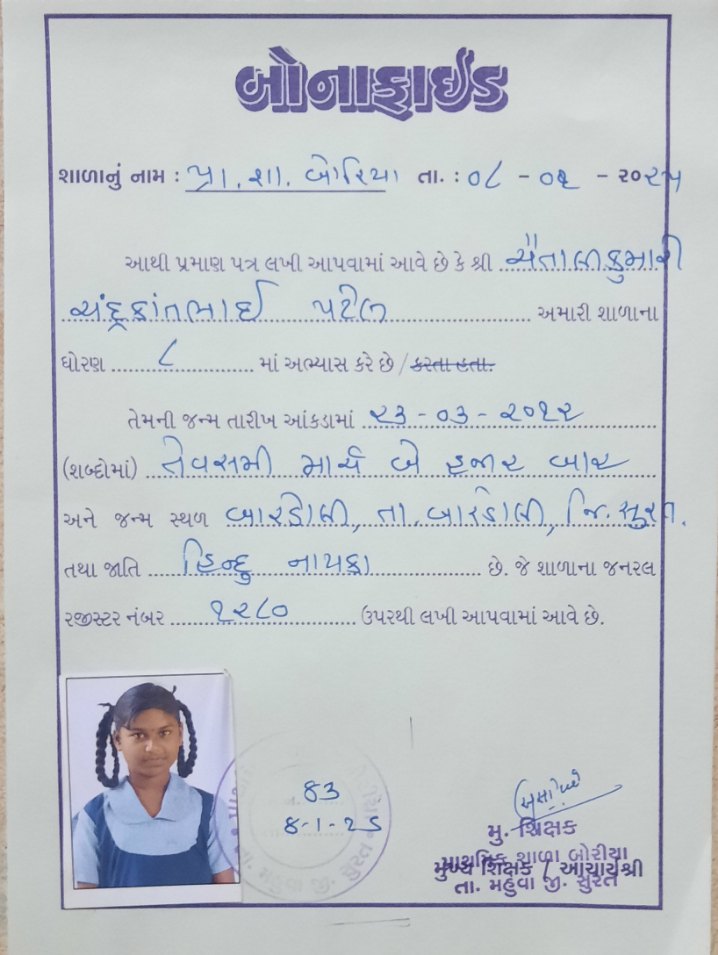 બોનાફાઈડ
શાળાનું નામ : પ્રા. શા. બોરિયા તા. : ૦૮ - ૦૧ - ૨૦૨૫
આથી પ્રમાણ પત્ર લખી આપવામાં આવે છે કે શ્રી ચૈતાલીકુમારી
ચંદ્રકાંતભાઈ પટેલ અમારી શાળાના
ધોરણ ૮ માં અભ્યાસ કરે છે / કરતા હતા.
તેમની જન્મ તારીખ આંકડામાં ૨૩ - ૦૩ - ૨૦૧૨
(શબ્દોમાં) તેવસમી માર્ચ બે હજાર બાર
અને જન્મ સ્થળ બારડોલી, તા. બારડોલી, જિ. સુરત.
તથા જાતિ હિન્દુ નાયકા છે. જે શાળાના જનરલ
રજીસ્ટર નંબર ૧૨૮૦ ઉપરથી લખી આપવામાં આવે છે.
તા. મહુવા જી. સુરત
મુ. શિક્ષક
પ્રાથમિક શાળા બોરીયા
મુખ્ય શિક્ષક / આચાર્યશ્રી
તા. મહુવા જી. સુરત